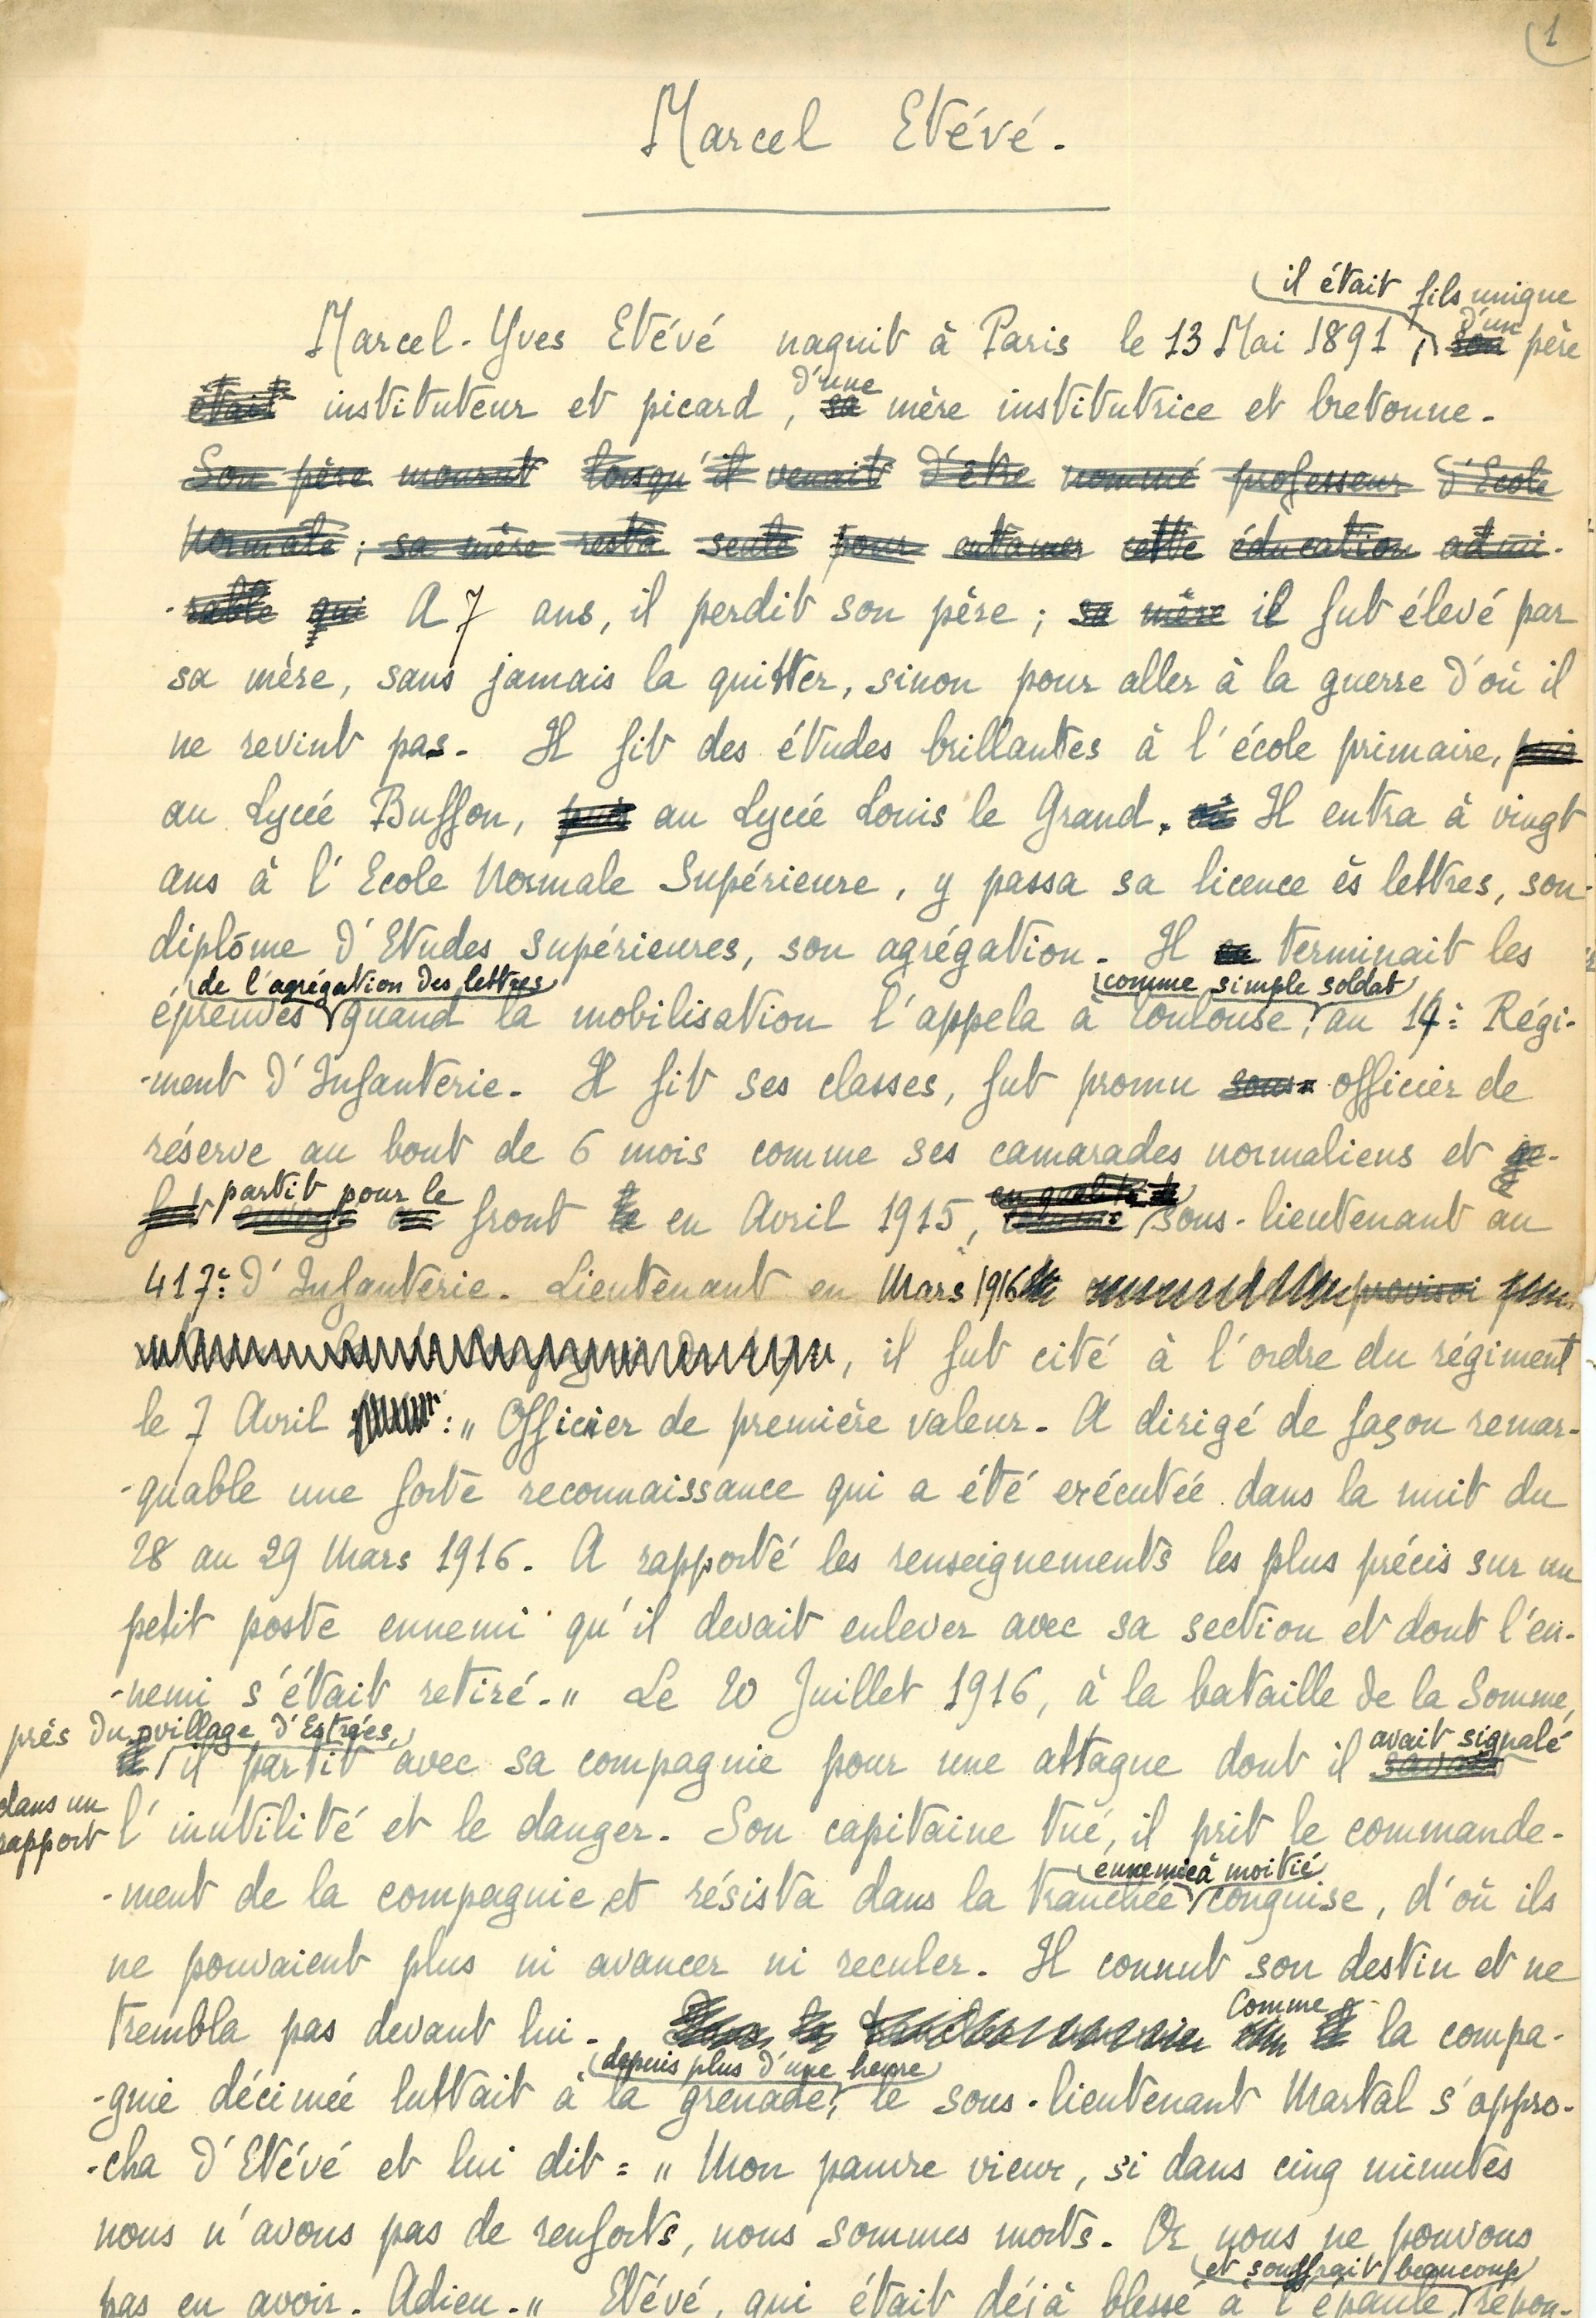 1
Marcel Etévé.
il était fils unique
Marcel-Yves Etévé naquit à Paris le 13 Mai 1891, d'un son père
était instituteur et picard, d'une sa mère institutrice et bretonne.
Son père mourut lorsqu'il venait d'être nommé professeur d'Ecole
Normale; sa mère resta seule pour entamer cette éducation admi-
-rable qui A 7 ans, il perdit son père; sa mère il fut élevé par
sa mère, sans jamais la quitter, sinon pour aller à la guerre d'où il
ne revint pas. Il fit des études brillantes à l'école primaire, puis
au Lycée Buffon, puis au Lycée Louis le Grand. Il entra à vingt
ans à l'Ecole Normale Supérieure, y passa sa licence ès lettres, son-
diplôme d'Etudes supérieures, son agrégation. Il terminait les
de l'agrégation des lettres comme simple soldat
épreuves quand la mobilisation l'appela à Toulouse, au 14e Régi-
-ment d'Infanterie. Il fit ses classes, fut promu sous- officier de
réserve au bout de 6 mois comme ses camarades normaliens et
partit pour le en qualité de
fut envoyé au front en Avril 1915, comme sous-lieutenant au
417e d'Infanterie. Lieutenant en Mars 1916 provisoi
, il fut cité à l'ordre du régiment
le 7 Avril : " Officier de première valeur. A dirigé de façon remar-
-quable une forte reconnaissance qui a été exécutée dans la nuit du
28 au 29 Mars 1916. A rapporté les renseignements les plus précis sur un
petit poste ennemi qu'il devait enlever avec sa section et dont l'en-
-nemi s'était retiré." Le 20 Juillet 1916, à la bataille de la Somme,
près du village d'Estrées, avait signalé
il partit avec sa compagnie pour une attaque dont il savait
dans un rapport l'inutilité et le danger. Son capitaine tué, il prit le commande-
ennemie à moitié
-ment de la compagnie et résista dans la tranchée conquise, d'où ils
ne pouvaient plus ni avancer ni reculer. Il connut son destin et ne
Comme
trembla pas devant lui. la compa-
depuis plus d'une heure
-gnie décimée luttait à la grenade, le sous-lieutenant Martal s'appro-
-cha d'Etévé et lui dit = " Mon pauvre vieux, si dans cinq minutes
nous n'avons pas de renforts, nous sommes morts. Or nous ne pouvons
et souffrait beaucoup
pas en avoir. Adieu." Etévé, qui était déjà blessé à l'épaule, répon-